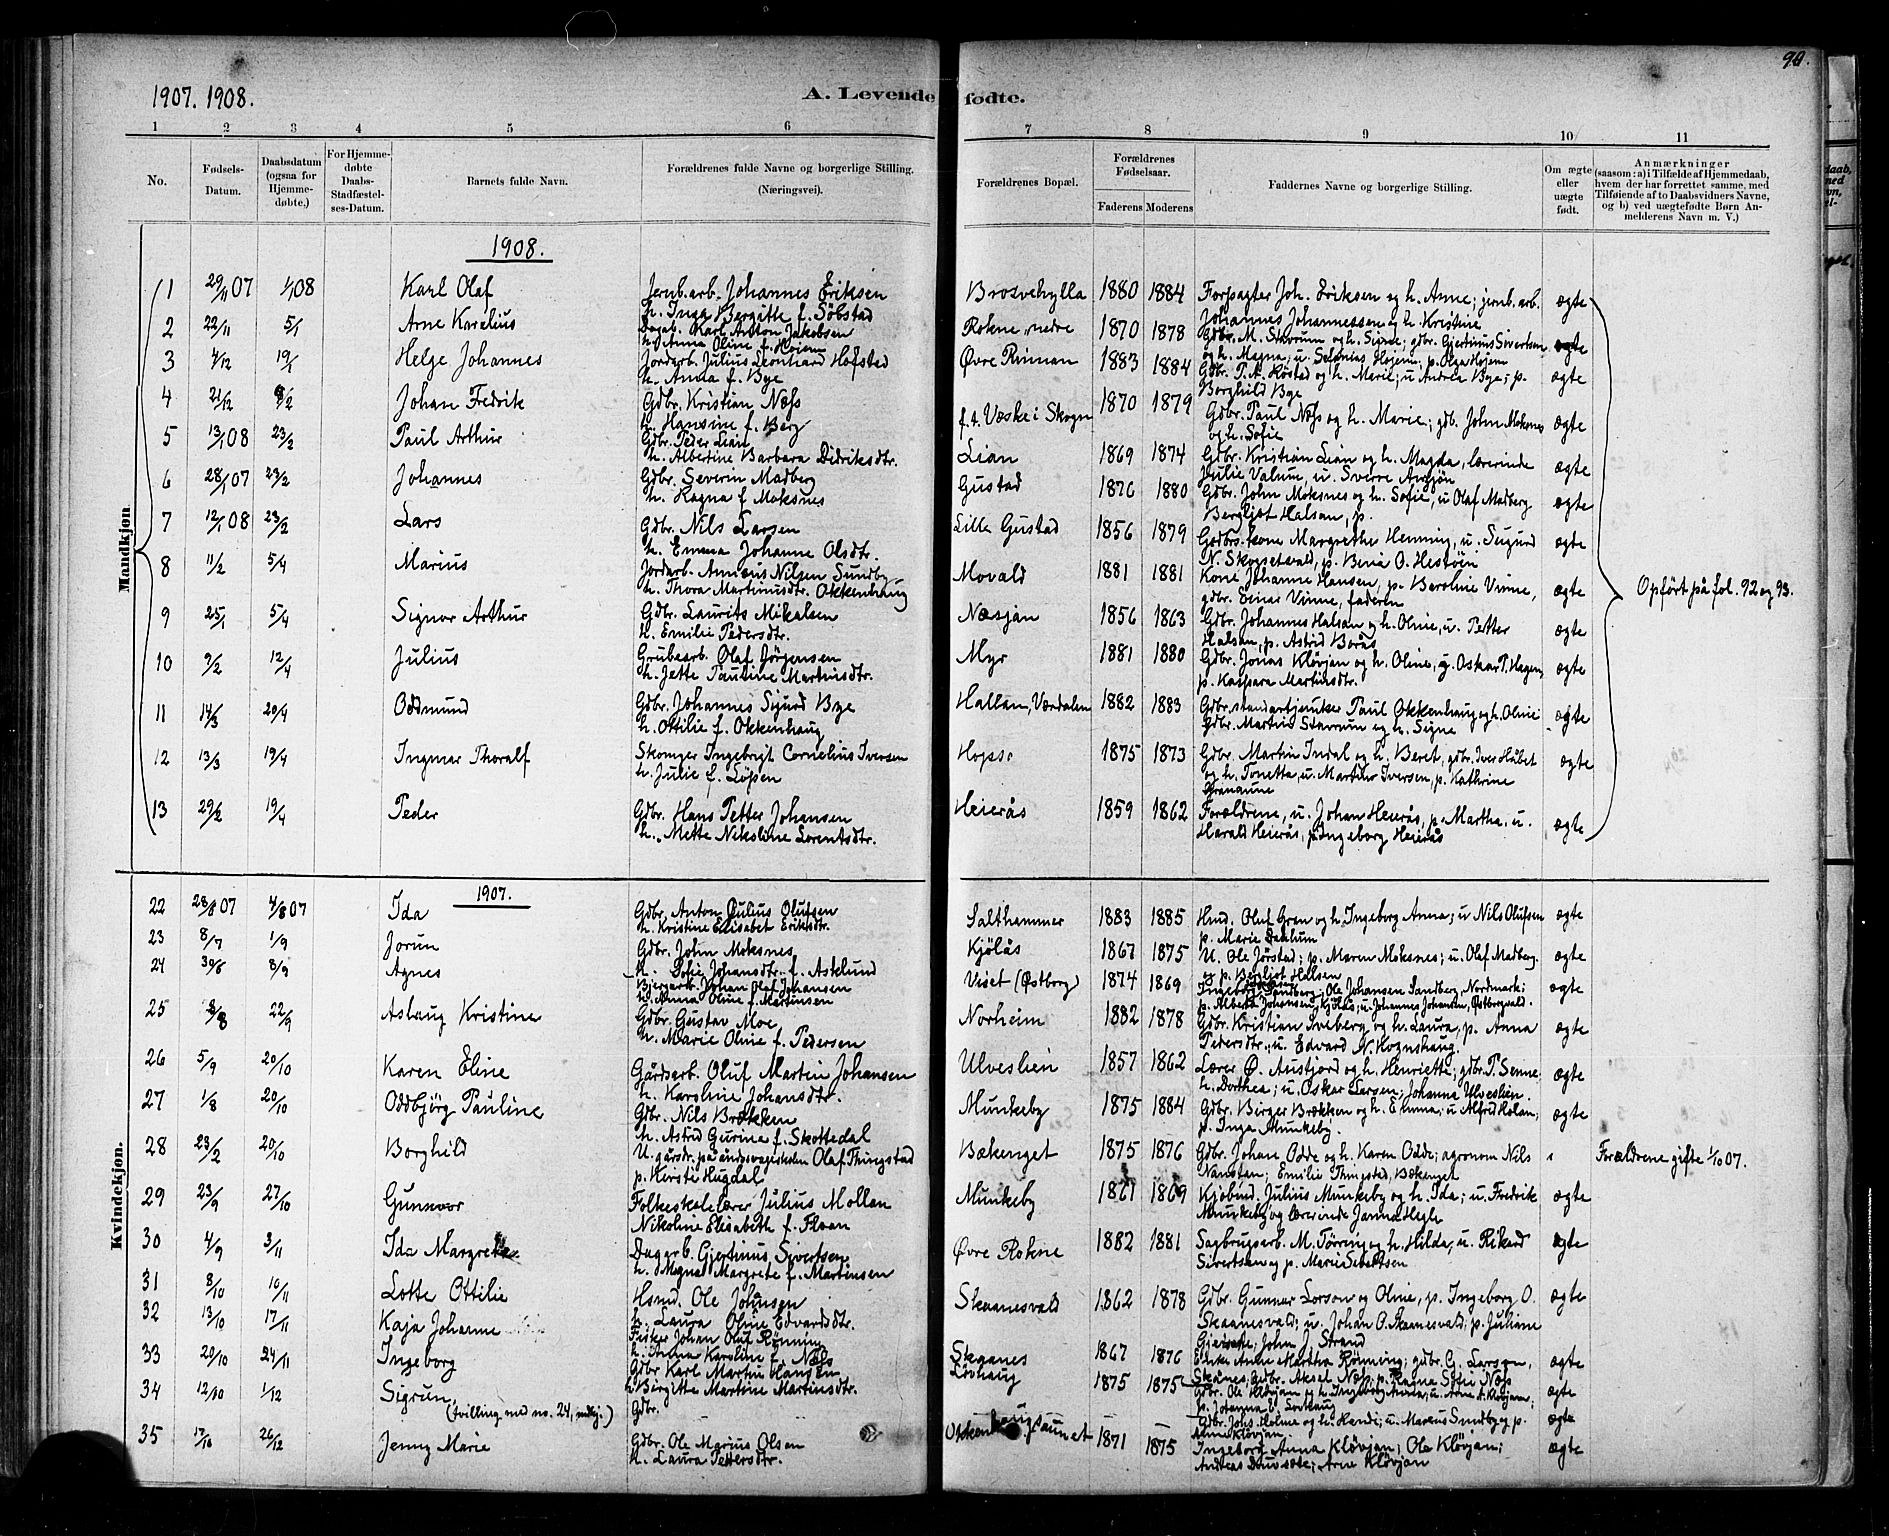 90.
1907. 1908.
A. Levende fødte.
1 2 3 4 5 6 7 8 9 10 11
No.
Fødsels-Datum.
Daabsdatum (ogsaa for Hjemme-døbte.)
For Hjemme-døbte Daabs-Stadfæstel-ses-Datum.
Barnets fulde Navn.
Forældrenes fulde Navne og borgerlige Stilling. (Næringsvei).
Forældrenes Bopæl.
Forældrenes Fødselsaar.
Faderens Moderens
Faddernes Navne og borgerlige Stilling.
Om ægte eller uægte født.
Anmærkninger (saasom: a) i Tilfælde af Hjemmedaab, hvem der har forrettet samme, med Tilføiende af to Daabsvidners Navne, og b) ved uægtefødte Børn Anmelderens Navn m. V.)
Mandkjøn.
1908.
1 29/11 07 1/1 08 Karl Olaf Jernb.arb. Johannes Eriksen Brosvehylla 1880 1884 Forpagter Joh. Eriksen og h. Anne; jernb. arb. ægte
h. Inga Bergitte f. Söbstad Johannes Johannessen og h. Kristine
2 22/11 5/1 Arne Kornelius Dagal. Karl Anton Jakobsen Rokne, nedre 1870 1878 Gdbr. M. Stavrum og h. Signe, gdbr. Gjertinus Sivertsen ægte
h. Anna Oline f. Hojem og h. Magna; u. Selanias Hojem; p. Olga Hojem
3 4/12 19/1 Helge Johannes Jordarb. Julius Leonhard Hofstad Øvre Rinnan 1883 1884 Gdbr. P. A. Röstad og h. Marie; u Andrea Bye; p. ægte
h. Anna f. Bye Borghild Bye
4 21/12 9/2 Johan Fredrik Gdbr. Kristian Næss f. t. Væske i Skogn 1870 1879 Gdbr. Paul Næss og h. Marie; gdb. John Moksnes ægte
h. Hansine f. Berg og h. Sofie
5 13/1 08 23/2 Paul Arthur Gdbr. Peder Lian Lian 1869 1874 Gdbr. Kristian Lian og h. Magda, lærerinde ægte
h. Albertine Barbara Didriksdtr. Julie Valum, u. Sverre Austjon
6 28/1 07 23/2 Johannes Gdbr. Severin Madberg Gustad 1876 1880 Gdbr. John Moksnes og h. Sofie, u Olaf Madberg ægte
h. Ragna f Moksnes Bergljot Halsan, p.
7 12/1 08 23/2 Lars Gdbr. Nils Larsen Lille Gustad 1856 1879 Godbrs. kone Margrethe Henning, u. Sigurd ægte
h. Emma Johanne Olsdtr. N. Skogsetvald, p. Beria O. Hestöen
8 11/2 5/4 Marius Jordarb. Annæus Nilsen Sundby Movald 1881 1881 Kone Johanne Hansen, p. Beroline Vinne, ægte
h. Thora Martinusdtr. Okkenhaug gdbr. Einar Vinne, faderen
9 25/1 5/4 Signor Arthur Gdbr. Laurits Mikalsen Næsjan 1856 1863 Gdbr. Johannes Halsan og h. Oline, u. Petter ægte
h. Emilie Pedersdtr. Halsan, p. Astrid Borås
10 9/2 12/4 Julius Grubearb. Olaf Jörgensen Myr 1881 1880 Gdbr. Jonas Klövjan og h. Oline, g. Oskar P. Hagen, ægte
h. Jette Pauline Martinsdtr. p. Kaspara Martinsdtr.
11 14/3 20/4 Oddmund Gdbr. Johannes Sigurd Bye Hallan, Værdalen 1882 1883 Gdbr. standartjunker Paul Okkenhaug og h. Oline ægte
h. Ottilie f. Okkenhaug Gdbr. Martin Stavrum og h. Signe
12 13/3 19/4 Ingmar Thoralf Skomager Ingebrigt Cornelius Iversen Hopse 1875 1873 Gdbr. Martin Indal og h. Beret, gdbr. Iver Håbet ægte
h. Julie f. Löpen og h. Tonetta, u. Martin Iversen, p. Kathrine
13 29/2 19/4 Peder Gdbr. Hans Petter Johansen Heierås 1859 1862 Forældrene, u. Johan Heierås, p. Martha, u. ægte
h. Mette Nikoline Lorentsdtr. Harald Heierås, p. Ingeborg Heierås
Opført på fol. 92 og 93.
Kvindekjøn.
1907.
22 23/8 07 4/8 07 Ida Gdbr. Anton Julius Olufsen Salthammer 1883 1885 Hmd. Oluf Gran og h. Ingeborg Anna; u Nils Olufsen ægte
h. Kristine Elisabet Eriksdtr. p. Marie Dahlum
23 8/7 1/9 Jorun Gdbr. John Moksnes Kjölås 1867 1875 U. Ole Jörstad; p. Maren Moksnes; u. Olaf Madberg. ægte
h. Sofie Johansdtr. f. Asklund og p. Bergliot Halsen
24 30/6 8/9 Agnes Bjergarb. Johan Olaf Johansen Viset (Østborg) 1874 1869 Ingeborg Sandberg, Ole Johansen Sandberg, Nordmark; ægte
h. Anna Oline f. Martinsen p. Alberta Johansen, Kjölås; u. Johannes Johansen, Østborgvald.
25 2/8 22/9 Aslaug Kristine Gdbr. Gustav Moe Norheim 1882 1878 Gdbr. Kristian Sveberg og h. Laura, p. Anna ægte
h. Marie Oline f. Pedersen Pedersdtr., u. Edvard N. Hoznshaug.
26 5/9 20/10 Karen Eline Gårdsarb. Oluf Martin Johansen Ulveslien 1857 1862 Lærer Ø. Austfjord og h. Henriette; gdbr. P. Semne ægte
h. Karoline Johansdtr. h. Dorthea; u. Oskar Larsen, Johanna Ulveslien.
27 1/8 20/10 Oddbjörg Pauline Gdbr. Nils Brækken Munkeby 1875 1884 Gdbr. Birger Brækken og h. Emma; u. Alfred Holan; ægte
h. Astrid Gurine f. Skottedal p. Inga Munkeby.
28 23/2 20/10 Borghild U. Olaf Thingstad Bækenget 1875 1876 Gdbr. Johan Odde og h. Karen Odde; agronom Nils Forældrene gifte 1/10 07.
p. Kirsti Hugdal Nanstan; Emilie Thingstad, Bækenget
29 23/9 27/10 Gunnvor Folkeskolelærer Julius Mollan Munkeby 1861 1869 Kjöbmd. Julius Munkeby og h. Ida; u. Fredrik ægte
Nikoline Elisabeth f. Floan Munkeby og lærerinde Janna Hegle
30 4/9 3/11 Ida Margrete Dagarb. Gjertinus Sivertsen Øvre Rokne 1882 1881 Sagbrugsarb. M. Törring og h. Hilda, u. Rikard ægte
h. Magna Margrete f. Martinsen Sivertsen og p. Marie Sivertsen
31 8/10 10/11 Lotte Ottilie Hsmd. Ole Johnsen Skaanesvald 1862 1878 Gdbr. Gunnar Larson og Oline, p. Ingeborg O. ægte
h. Laura Oline Edvardsdtr. Skaanesvald; u. Johan O. Skaanesvald; p. Juliane
32 13/10 17/11 Kaja Johanne Fisker Johan Oluf Rönning Skaanes 1867 1876 Enke Anne Martha Rönning; gdbr. G. Larsen, ægte
h. Anna Karoline f. Næss Skånes, gdbr. Aksel Næss; p. Ragna Sofie Næss
33 20/10 24/11 Ingeborg Gdbr Karl Martin Hansen Lövhaug 1875 1875 Gdbr. Ole Klövjan og h. Ingeborg Anna; u. Arne A. Klövjan; ægte
h Birgitte Martine Martinsdtr.
34 12/10 1/12 Sigrun Gdbr. — — Gdbr. Johs. Holme og h. Randi; u. Marius Sundby og p. ægte
(tvilling med no. 24, nedlg.) Anne Klövjan.
35 17/10 26/12 Jenny Marie Gdbr. Ole Marius Olsen Okkenhaugsaunet 1871 1875 Ingeborg Anna Klövjan; Ole Klövjan; ægte
h. Laura Pettersdtr. Andreas Duvsete; Arne Klövjan